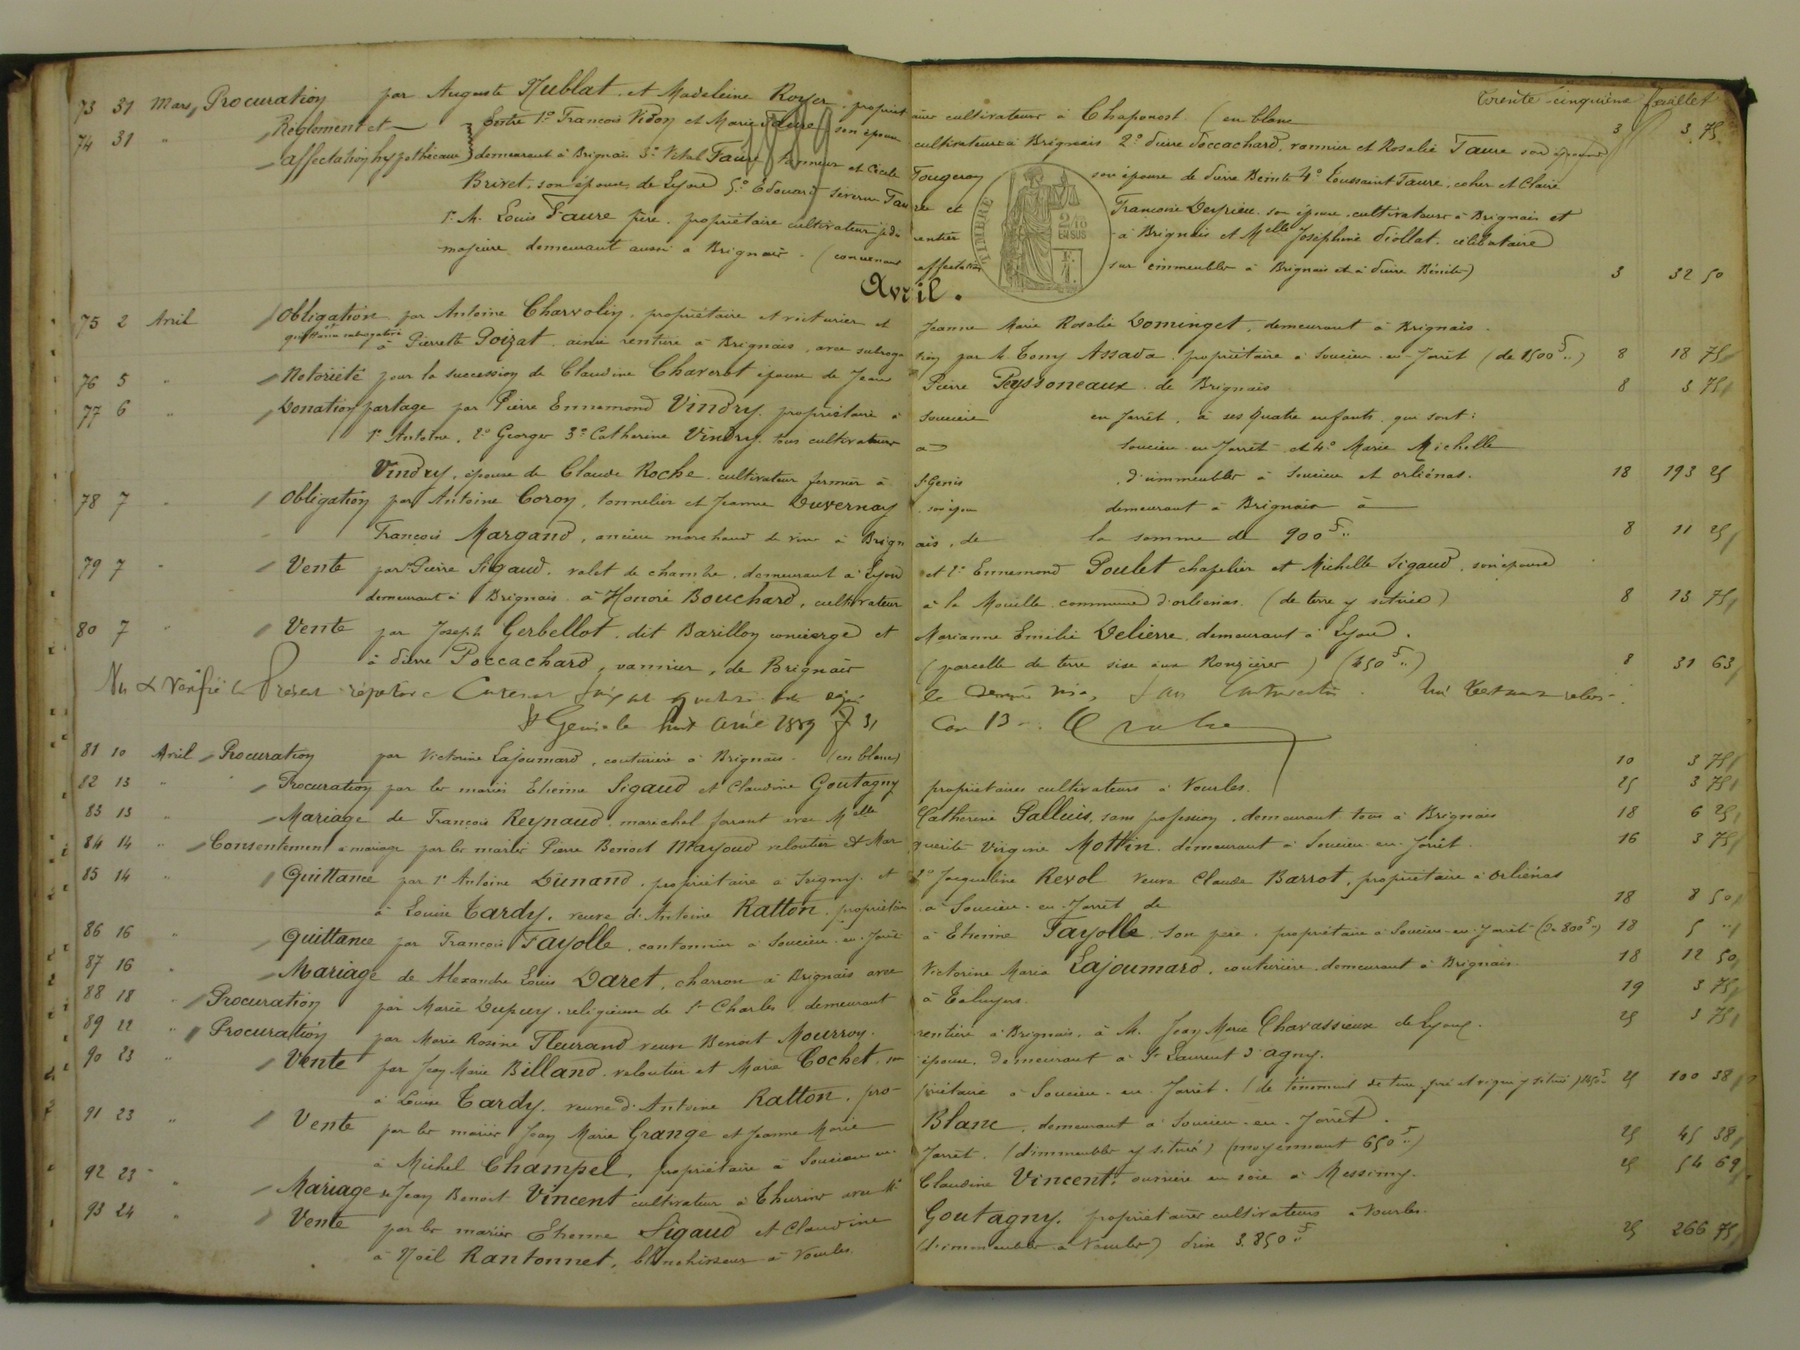 Trente-cinquième feuillet
73 31 Mars Procuration par Auguste Nublat et Madeleine Royer propriétaires cultivateurs à Chaponost (en blanc 3 3 75
74 31 " Règlement et entre 1° François Vidon et Marie Faure son épouse cultivateurs à Brignais 2° Pierre Poccachard, vannier et Rosalie Faure son épouse
affectation hypothécaire demeurant à Brignais 3° Vital Faure, et Cécile Fougeray son épouse de Pierre Bénite 4° Toussaint Faure, cocher et Claire
Brivet, son épouse, de Lyon 5° Edouard Séverin Faure et Françoise Deyrieu son épouse, cultivateurs à Brignais et
M. Louis Faure père, propriétaire cultivateur jadis rentier à Brignais et Melle Joséphine Piollat, célibataire
majeure demeurant aussi à Brignais. (concernant affectation sur immeubles à Brignais et à Pierre Bénite) 3 32 50
TIMBRE 2/10 EN SUS
Avril.
75 2 Avril Obligation par Antoine Charvolin, propriétaire et voiturier et Jeanne Marie Rosalie Dominget, demeurant à Brignais
à Pierrette Poizat, aînée rentière à Brignais, avec subrogation par le Tony Assada, propriétaire à Soucieu-en-Jarrêt (de 1500f..) 8 18 75
76 5 " Notoriété pour la succession de Claudine Chaverot épouse de Jean Pierre Peyssoneaux de Brignais 8 3 75
77 6 " Donation partage par Pierre Ennemond Vindry, propriétaire à Soucieu en Jarrêt, à ses quatre enfants qui sont:
1° Antoine, 2° Georges 3° Catherine Vindry, tous cultivateurs à Soucieu-en-Jarrêt et 4° Marie Michelle
Vindry, épouse de Claude Roche, cultivateur fermier à St Genis d'immeubles à Soucieu et Orliénas. 18 193 25
78 7 " Obligation par Antoine Coron, tonnelier et Jeanne Duvernay son épouse demeurant à Brignais à
François Margand, ancien marchand de vin à Brignais, de la somme de 900f.. 8 11 25
79 7 " Vente par 1° Pierre Sigaud, valet de chambre, demeurant à Lyon et 2° Ennemond Poulet chapelier et Michelle Sigaud, son épouse
demeurant à Brignais à Honoré Bouchard, cultivateur à la Mouille commune d'Orliénas. (de terre y située) 8 13 75
80 7 " Vente par Joseph Gerbellot, dit Barillon concierge et Marianne Emélie Delierre, demeurant à Lyon.
à Pierre Poccachard, vannier, de Brignais (parcelle de terre sise aux Ronzières) (450f..) 8 31 63
Vu & Vérifié le présent répertoire
St Genis le huit avril 1889
81 10 Avril Procuration par Victorine Lajoumard, couturière à Brignais. (en blanc) 10 3 75
82 13 " Procuration par les mariés Etienne Sigaud et Claudine Goutagny propriétaires cultivateurs à Vourles. 25 3 75
83 13 " Mariage de François Reynaud, maréchal ferrant avec Melle Catherine Palluis, sans profession, demeurant tous à Brignais 18 6 25
84 14 " Consentement à mariage par les mariés Pierre Benoit Mayoud veloutier & Marguerite Virginie Mottin, demeurant à Soucieu-en-Jarrêt. 16 3 75
85 14 " Quittance par 1° Antoine Dunand, propriétaire à Irigny, et 2° Jacqueline Revol veuve Claude Barrot, propriétaire à Orliénas
à Louise Tardy, veuve d'Antoine Ratton, propriétaire à Soucieu-en-Jarrêt de 18 8 50
86 16 " Quittance par François Fayolle, cantonnier à Soucieu-en-Jarrêt à Etienne Fayolle, son père, propriétaire à Soucieu-en-Jarrêt (de 800f..) 18 5 ..
87 16 " Mariage de Alexandre Louis Daret, charron à Brignais avec Victorine Maria Lajoumard, couturière, demeurant à Brignais. 18 12 50
88 18 " Procuration par Marie Dupuy, religieuse de St Charles, demeurant à Taluyers. 19 3 75
89 22 " Procuration par Marie Rosine Fleurand veuve Benoit Mourron, rentière à Brignais, à M. Jean Marie Chavassieux de Lyon. 25 3 75
90 23 " Vente par Jean Marie Billand, veloutier et Marie Cochet, son épouse, demeurant à St Laurent d'Agny.
à Louise Tardy, veuve d'Antoine Ratton, propriétaire à Soucieu-en-Jarrêt. (de tènement de terre, pré et vigne y situé) 25 100 38
91 23 " Vente par les mariés Jean Marie Grange et Jeanne Marie Blanc, demeurant à Soucieu-en-Jarrêt.
à Michel Champel, propriétaire à Soucieu-en-Jarrêt. (d'immeubles y situés) (moyennant 650f..) 25 45 38
92 23 " Mariage de Jean Benoit Vincent cultivateur à Thurins avec Mlle Claudine Vincent, ouvrière en soie à Messimy. 25 54 69
93 24 " Vente par les mariés Etienne Sigaud et Claudine Goutagny, propriétaires cultivateurs à Vourles.
à Noël Rantonnet, blanchisseur à Vourles (d'immeubles à Vourles) Prix 3.850f.. 25 266 75